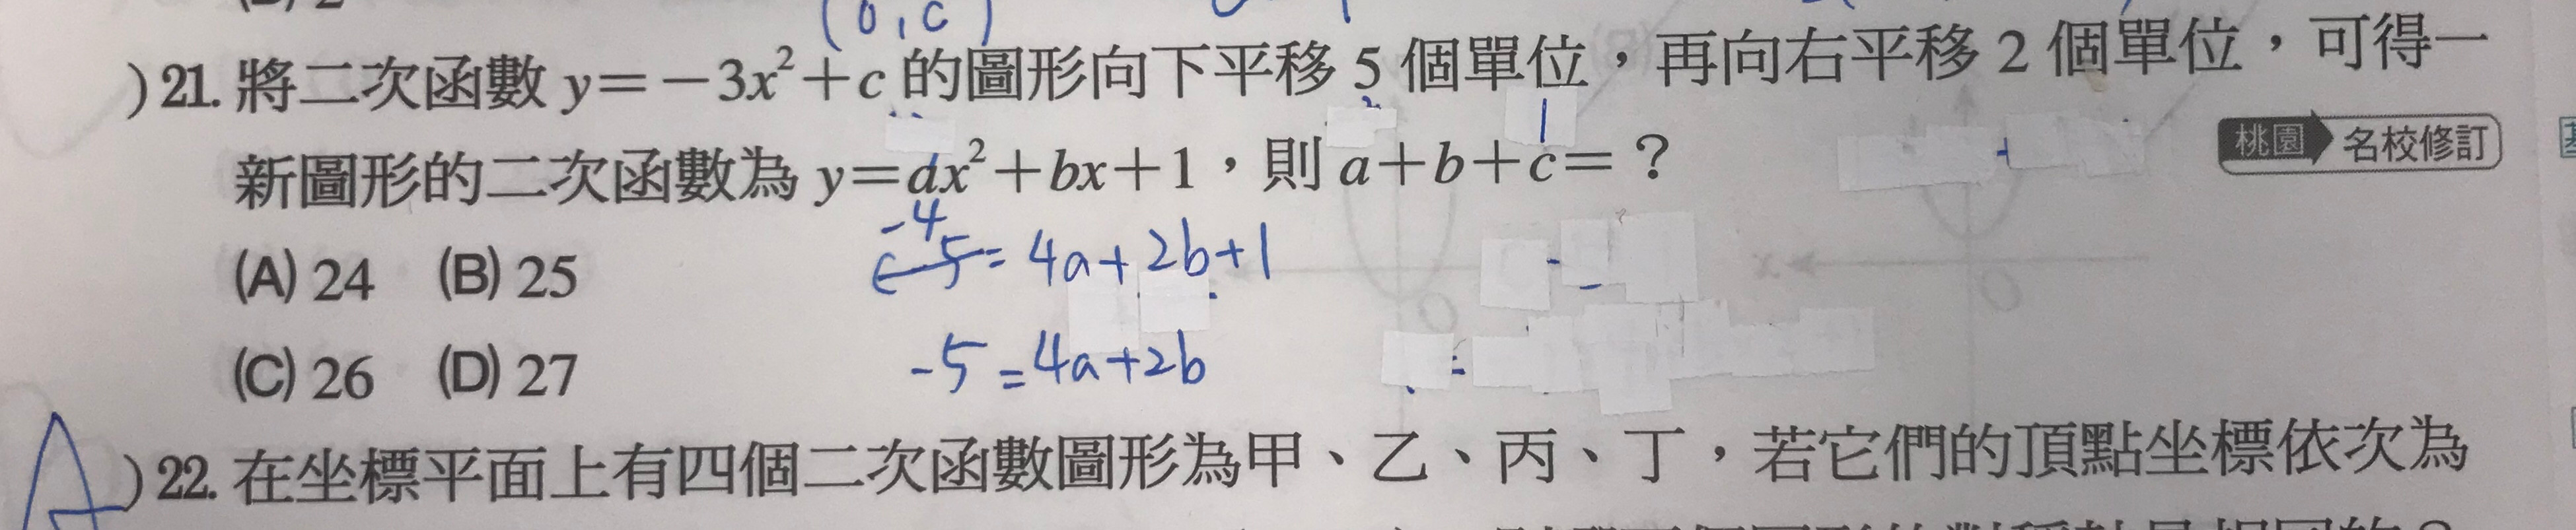 (0,c)
)21. 將二次函數 y=-3x²+c 的圖形向下平移 5 個單位，再向右平移 2 個單位，可得一
新圖形的二次函數為 y=ax²+bx+1，則 a+b+c=？ 桃園 名校修訂
-4
c-5=4a+2b+1
(A) 24 (B) 25
-5=4a+2b
(C) 26 (D) 27
A )22. 在坐標平面上有四個二次函數圖形為甲、乙、丙、丁，若它們的頂點坐標依次為